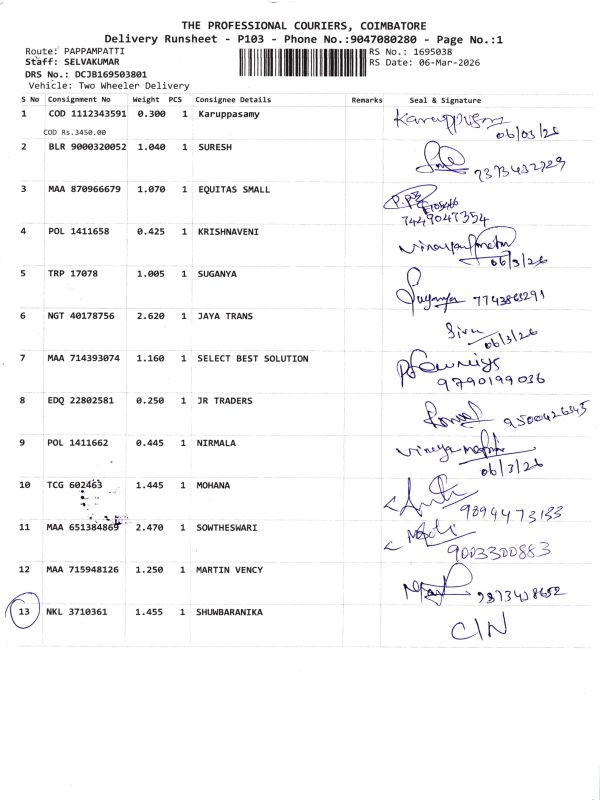 THE PROFESSIONAL COURIERS, COIMBATORE
Delivery Runsheet - P103 - Phone No.:9047080280 - Page No.:1
Route: PAPPAMPATTI
RS No.: 1695038
Staff: SELVAKUMAR
RS Date: 06-Mar-2026
DRS No.: DCJB169503801
Vehicle: Two Wheeler Delivery
S No Consignment No Weight PCS Consignee Details Remarks Seal & Signature
1 COD 1112343591 0.300 1 Karuppasamy
COD Rs.3450.00
06/03/26
2 BLR 9000320052 1.040 1 SURESH
7373432729
3 MAA 870966679 1.070 1 EQUITAS SMALL
7449047354
4 POL 1411658 0.425 1 KRISHNAVENI
06/3/26
5 TRP 17078 1.005 1 SUGANYA Suganya 7743863291
6 NGT 40178756 2.620 1 JAYA TRANS Siva
06/3/26
7 MAA 714393074 1.160 1 SELECT BEST SOLUTION
9790199036
8 EDQ 22802581 0.250 1 JR TRADERS 9500426345
9 POL 1411662 0.445 1 NIRMALA
06/3/26
10 TCG 602463 1.445 1 MOHANA
9894473133
11 MAA 651384869 2.470 1 SOWTHESWARI
9003300883
12 MAA 715948126 1.250 1 MARTIN VENCY
13 NKL 3710361 1.455 1 SHUWBARANIKA C/N